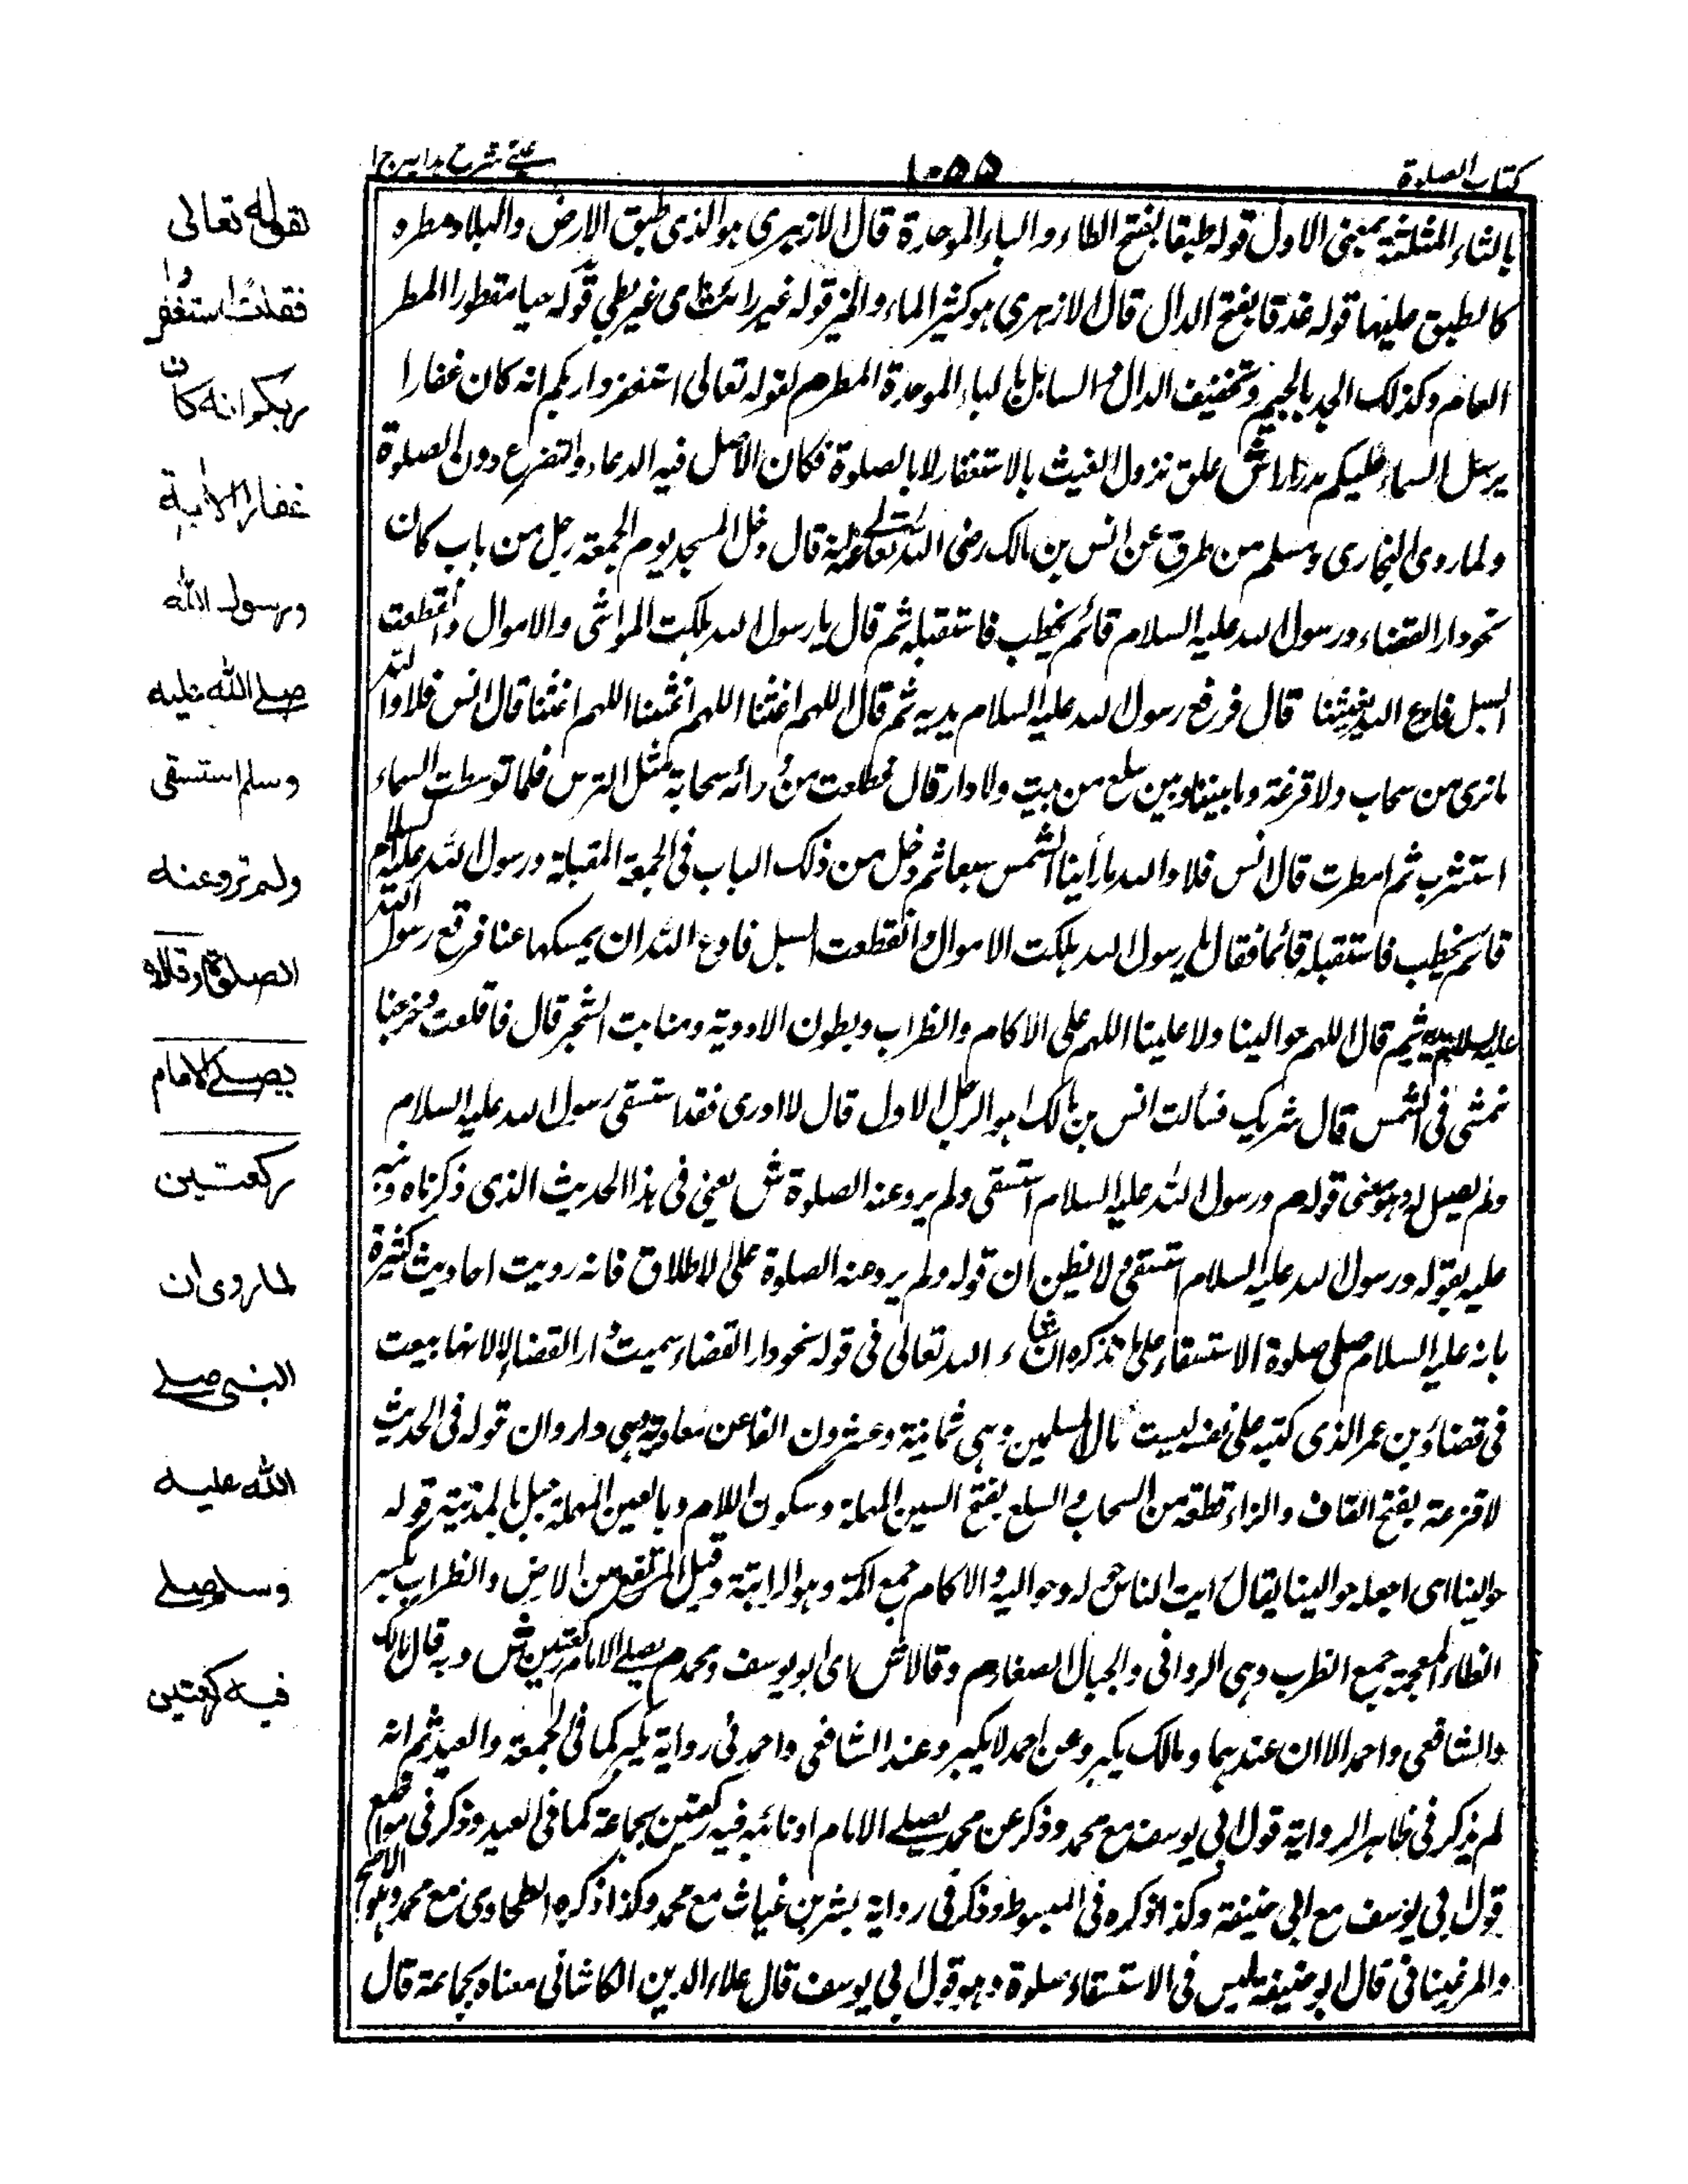 كتاب الصلوة
١٠٥٥
عيني شرح هدايه ج ١
بالثاء المثلثة بمعنى الاول قوله طبقا بفتح الطاء والباء الموحدة قال الازهري هو الذي طبق الارض والبلاد مطره
كالطبق عليها قوله غدقا بفتح الدال قال الازهري هو كثير الماء والخير قوله غير رائث اى غير بطي قوله حيا مقطورا المطر
العام وكذلك الجد بالجيم وتخفيف الدال السابل بالباء الموحدة المطر م لقوله تعالى استغفروا ربكم انه كان غفارا
يرسل السماء عليكم مدرارا ش علق نزول الغيث بالاستغفار لا بالصلوة فكان الاصل فيه الدعاء والتضرع دون الصلوة
ولما روى البخارى ومسلم من طرق عن انس بن مالك رضى الله تعالى عنه قال دخل المسجد يوم الجمعة رجل من باب كان
نحو دار القضاء ورسول الله عليه السلام قائم يخطب فاستقبله ثم قال يا رسول الله هلكت المواشى والاموال وانقطعت
السبل فادع الله يغيثنا قال فرفع رسول الله عليه السلام يديه ثم قال اللهم اغثنا اللهم اغثنا اللهم اغثنا قال انس فلا والله
مانرى من سحاب ولا قزعة وما بيننا وبين سلع من بيت ولا دار قال فطلعت من ورائه سحابة مثل الترس فلما توسطت السماء
انتشرت ثم امطرت قال انس فلا والله ما رأينا الشمس سبعا ثم دخل من ذلك الباب في الجمعة المقبلة ورسول الله عليه السلام
قائم يخطب فاستقبله قائما فقال يا رسول الله هلكت الاموال وانقطعت السبل فادع الله ان يمسكها عنا فرفع رسول الله
عليه السلام يديه ثم قال اللهم حوالينا ولا علينا اللهم على الاكام والظراب وبطون الاودية ومنابت الشجر قال فاقلعت وخرجنا
نمشى فى الشمس قال شريك فسألت انس بن مالك اهو الرجل الاول قال لا ادرى فقد استسقى رسول الله عليه السلام
ولم يصل له وهو معنى قوله م ورسول الله عليه السلام استسقى ولم يرو عنه الصلوة ش يعنى فى هذا الحديث الذى ذكرناه ونبه
عليه بقوله ورسول الله عليه السلام استسقى لا يظن ان قوله ولم يرو عنه الصلوة على الاطلاق فانه رويت احاديث كثيرة
بانه عليه السلام صلى صلوة الاستسقاء على ما تذكره ان شاء الله تعالى فى قوله نحو دار القضاء سميت دار القضاء لانها بيعت
فى قضاء دين عمر الذى كتبه على نفسه لبيت مال المسلمين وهى ثمانية وعشرون الفا عن معاوية وهى دار مروان قوله فى الحديث
لا قزعة بفتح القاف والزاء قطعة من السحاب والسلع بفتح السين المهملة وسكون اللام وبالعين المهملة جبل بالمدينة قوله
حوالينا اى اجعله حوالينا يقال رايت الناس حوله وحواليه والاكام جمع اكمة وهو الرابية وقيل المرتفع من الارض والظراب بكسر
الظاء المعجمة جمع الظرب وهى الروابى والجبال الصغار م وقالا ش اى ابو يوسف ومحمد م يصلى الامام ركعتين ش وبه قال مالك
والشافعى واحمد الا ان عندهما ومالك يكبر وعن احمد لا يكبر وعند الشافعى واحمد فى رواية يكبر كما فى الجمعة والعيد ثم انه
لم يذكر فى ظاهر الرواية قول ابى يوسف مع محمد وذكر عن محمد يصلى الامام او نائبه فيه ركعتين بجماعة كما فى العيد وذكر فى مواضع
قول ابى يوسف مع ابى حنيفة وكذا ذكره فى المبسوط وذكر فى رواية بشر بن غياث مع محمد وكذا ذكره الطحاوى مع محمد وهو الاصح
والمرغينانى قال ابو حنيفة ليس فى الاستسقاء صلوة وهو قول ابى يوسف قال علاء الدين الكاشانى معناه بجماعة قال
لقوله تعالى
فقلت استغفروا
ربكم انه كان
غفارا الاية
ورسول الله
صلى الله عليه
وسلم استسقى
ولم ترو عنه
الصلوة وقالا
يصلى الامام
ركعتين
لما روى ان
النبى صلى
الله عليه
وسلم صلى
فيه ركعتين